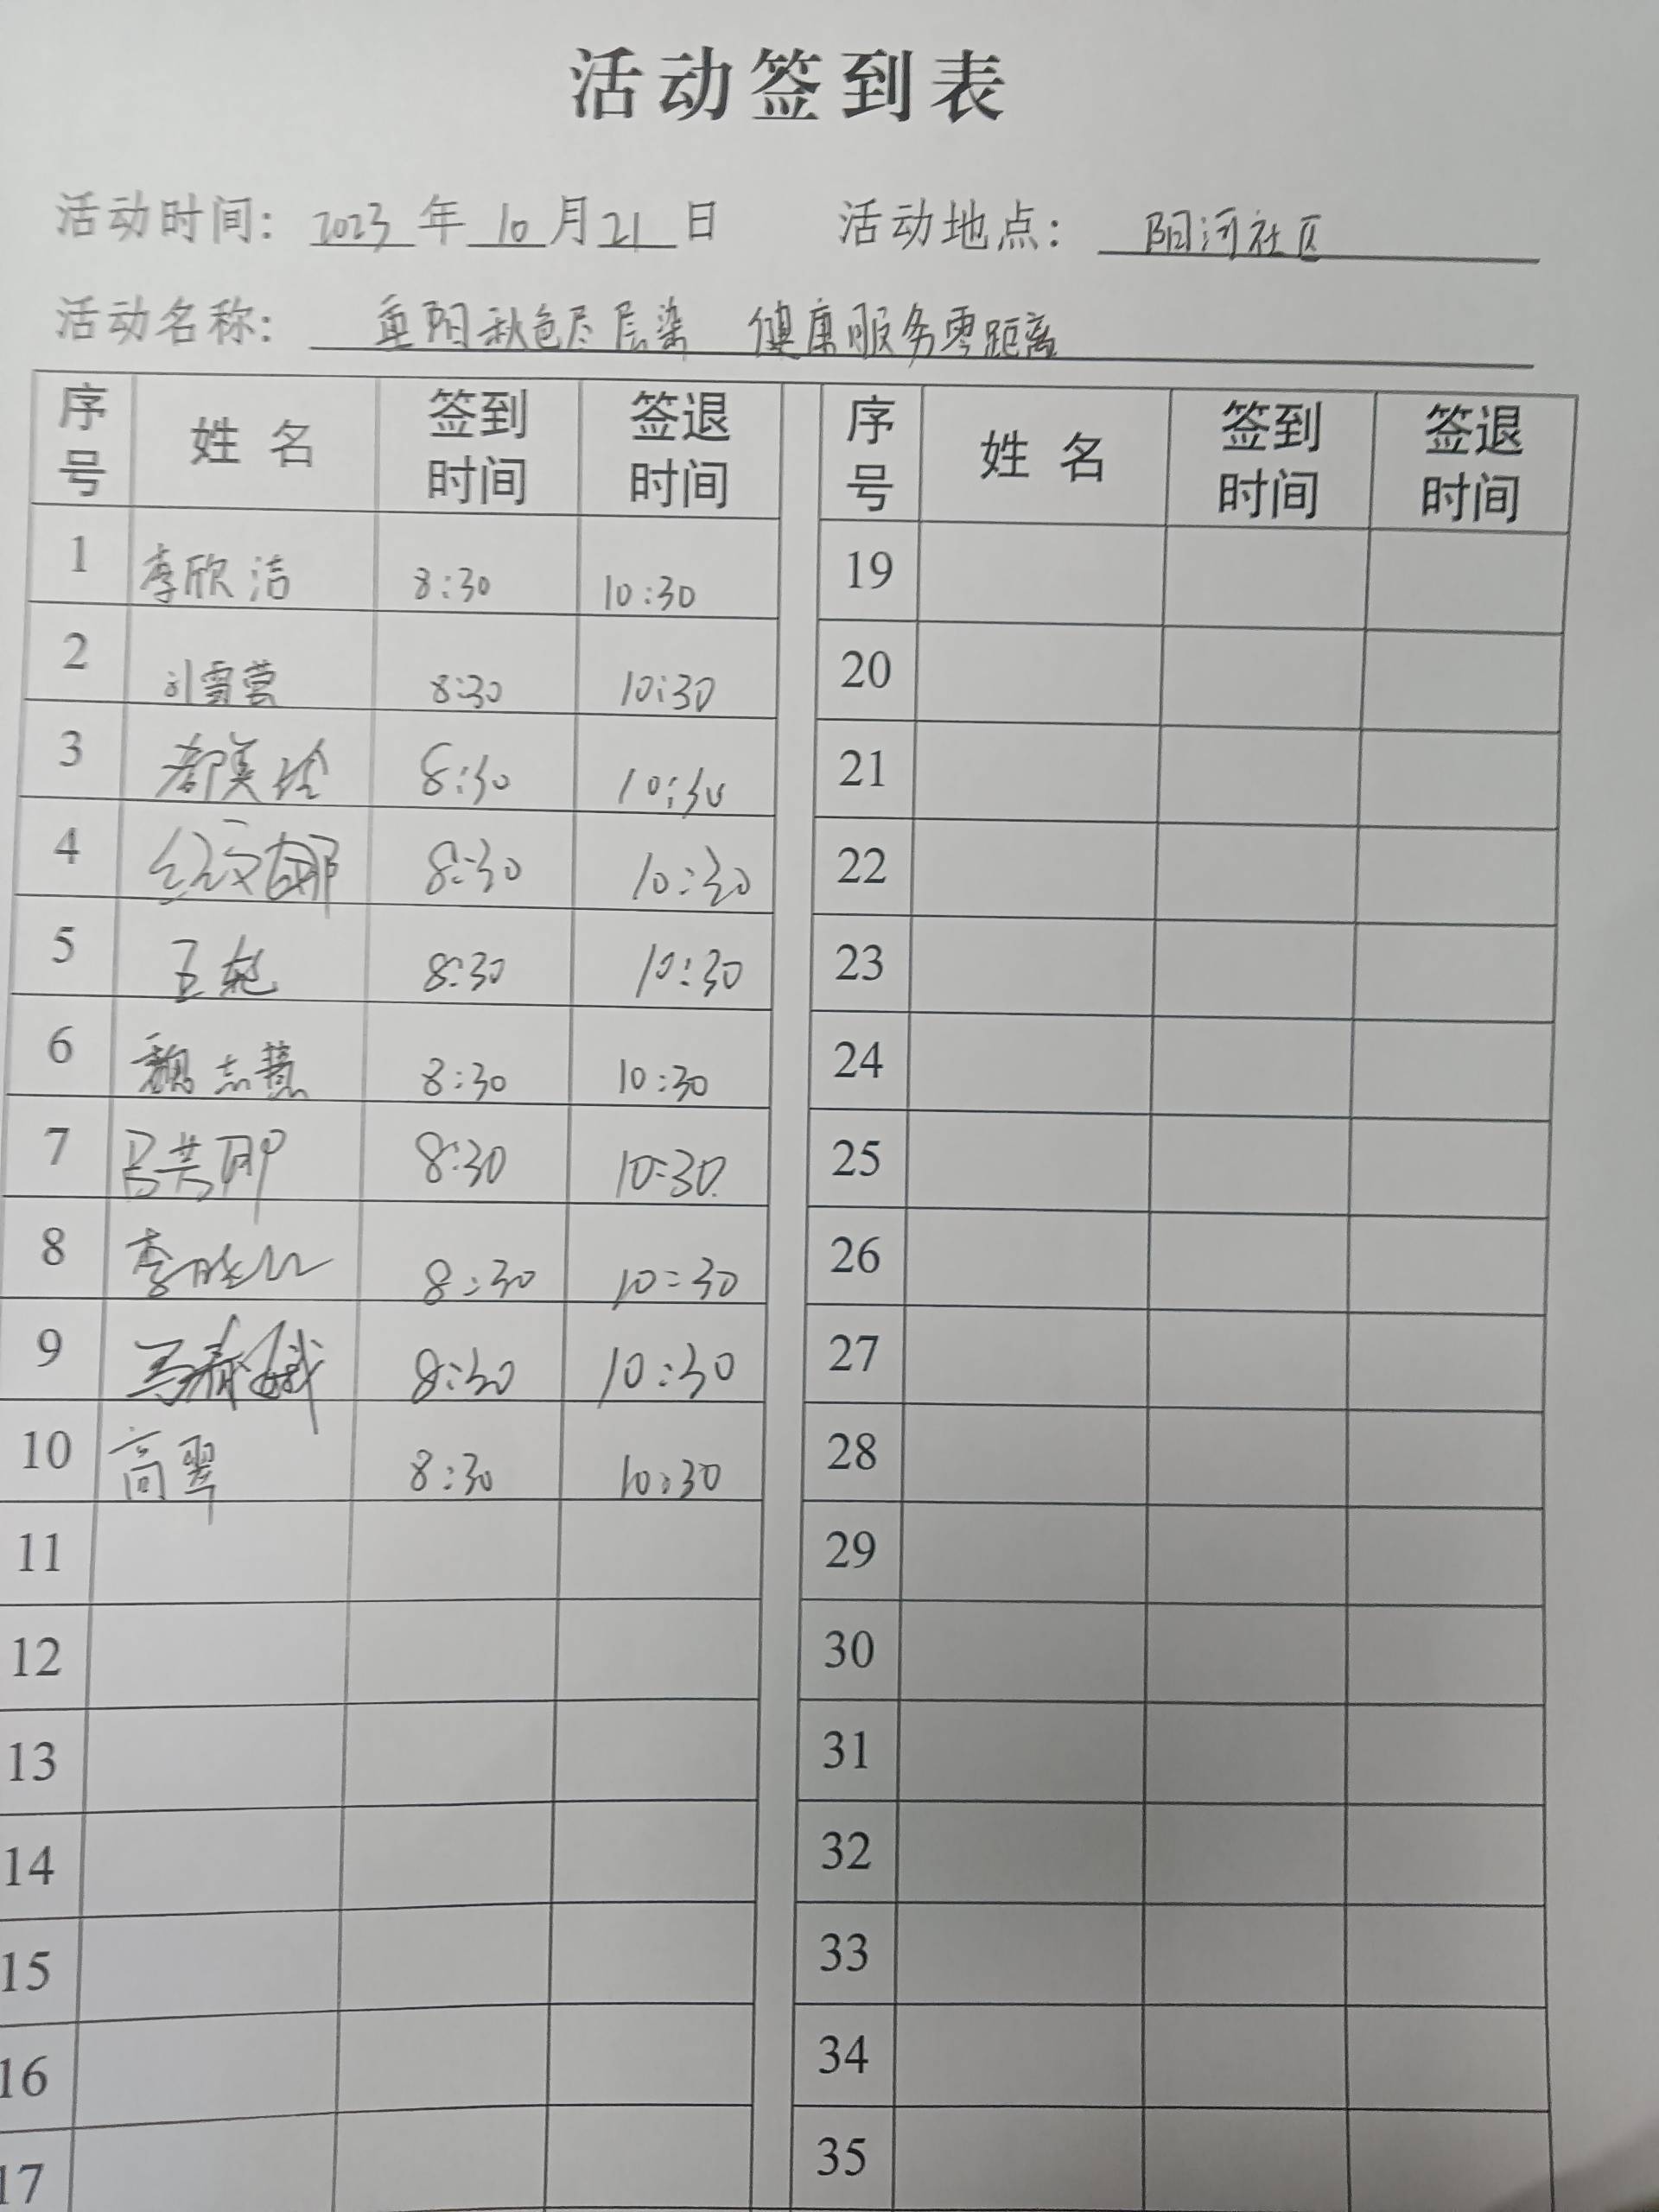 活动签到表
活动时间：2023年10月21日 活动地点：阳河社区
活动名称：重阳秋色尽层染 健康服务零距离
序号 姓名 签到时间 签退时间 序号 姓名 签到时间 签退时间
1 李欣洁 8:30 10:30 19
2 刘雪营 8:30 10:30 20
3 8:30 10:30 21
4 8:30 10:30 22
5 王艳 8:30 10:30 23
6 魏志慧 8:30 10:30 24
7 8:30 10:30 25
8 李 8:30 10:30 26
9 马春娥 8:30 10:30 27
10 高翠 8:30 10:30 28
11 29
12 30
13 31
14 32
15 33
16 34
17 35